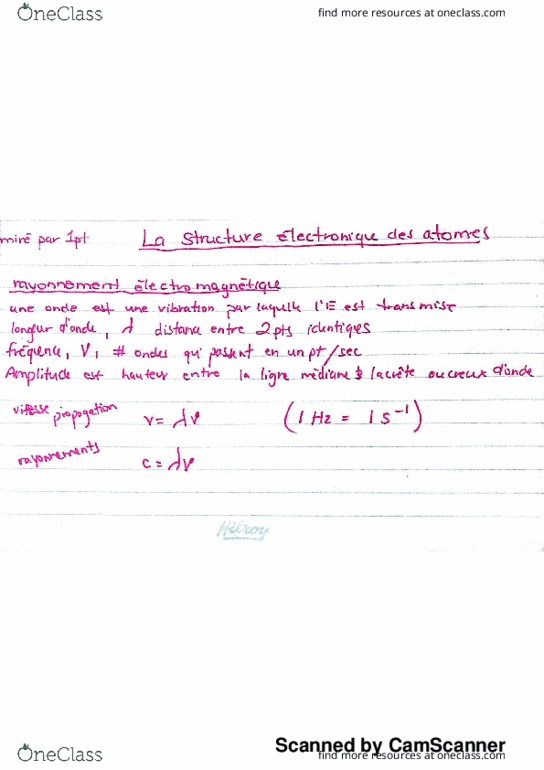 OneClass
find more resources at oneclass.com
miré par 1pt
La structure électronique des atomes
rayonnement électromagnétique
une onde est une vibration par laquelle l'E est transmise
longeur d'onde, λ distance entre 2pts identiques
fréquence, ν, # ondes qui passent en un pt/sec
Amplitude est hauteur entre la ligne médiane & la crête ou creux d'onde
vitesse propogation v = λν (1 Hz = 1 s⁻¹)
rayonnements c = λν
Hilroy
Scanned by CamScanner
OneClass
find more resources at oneclass.com